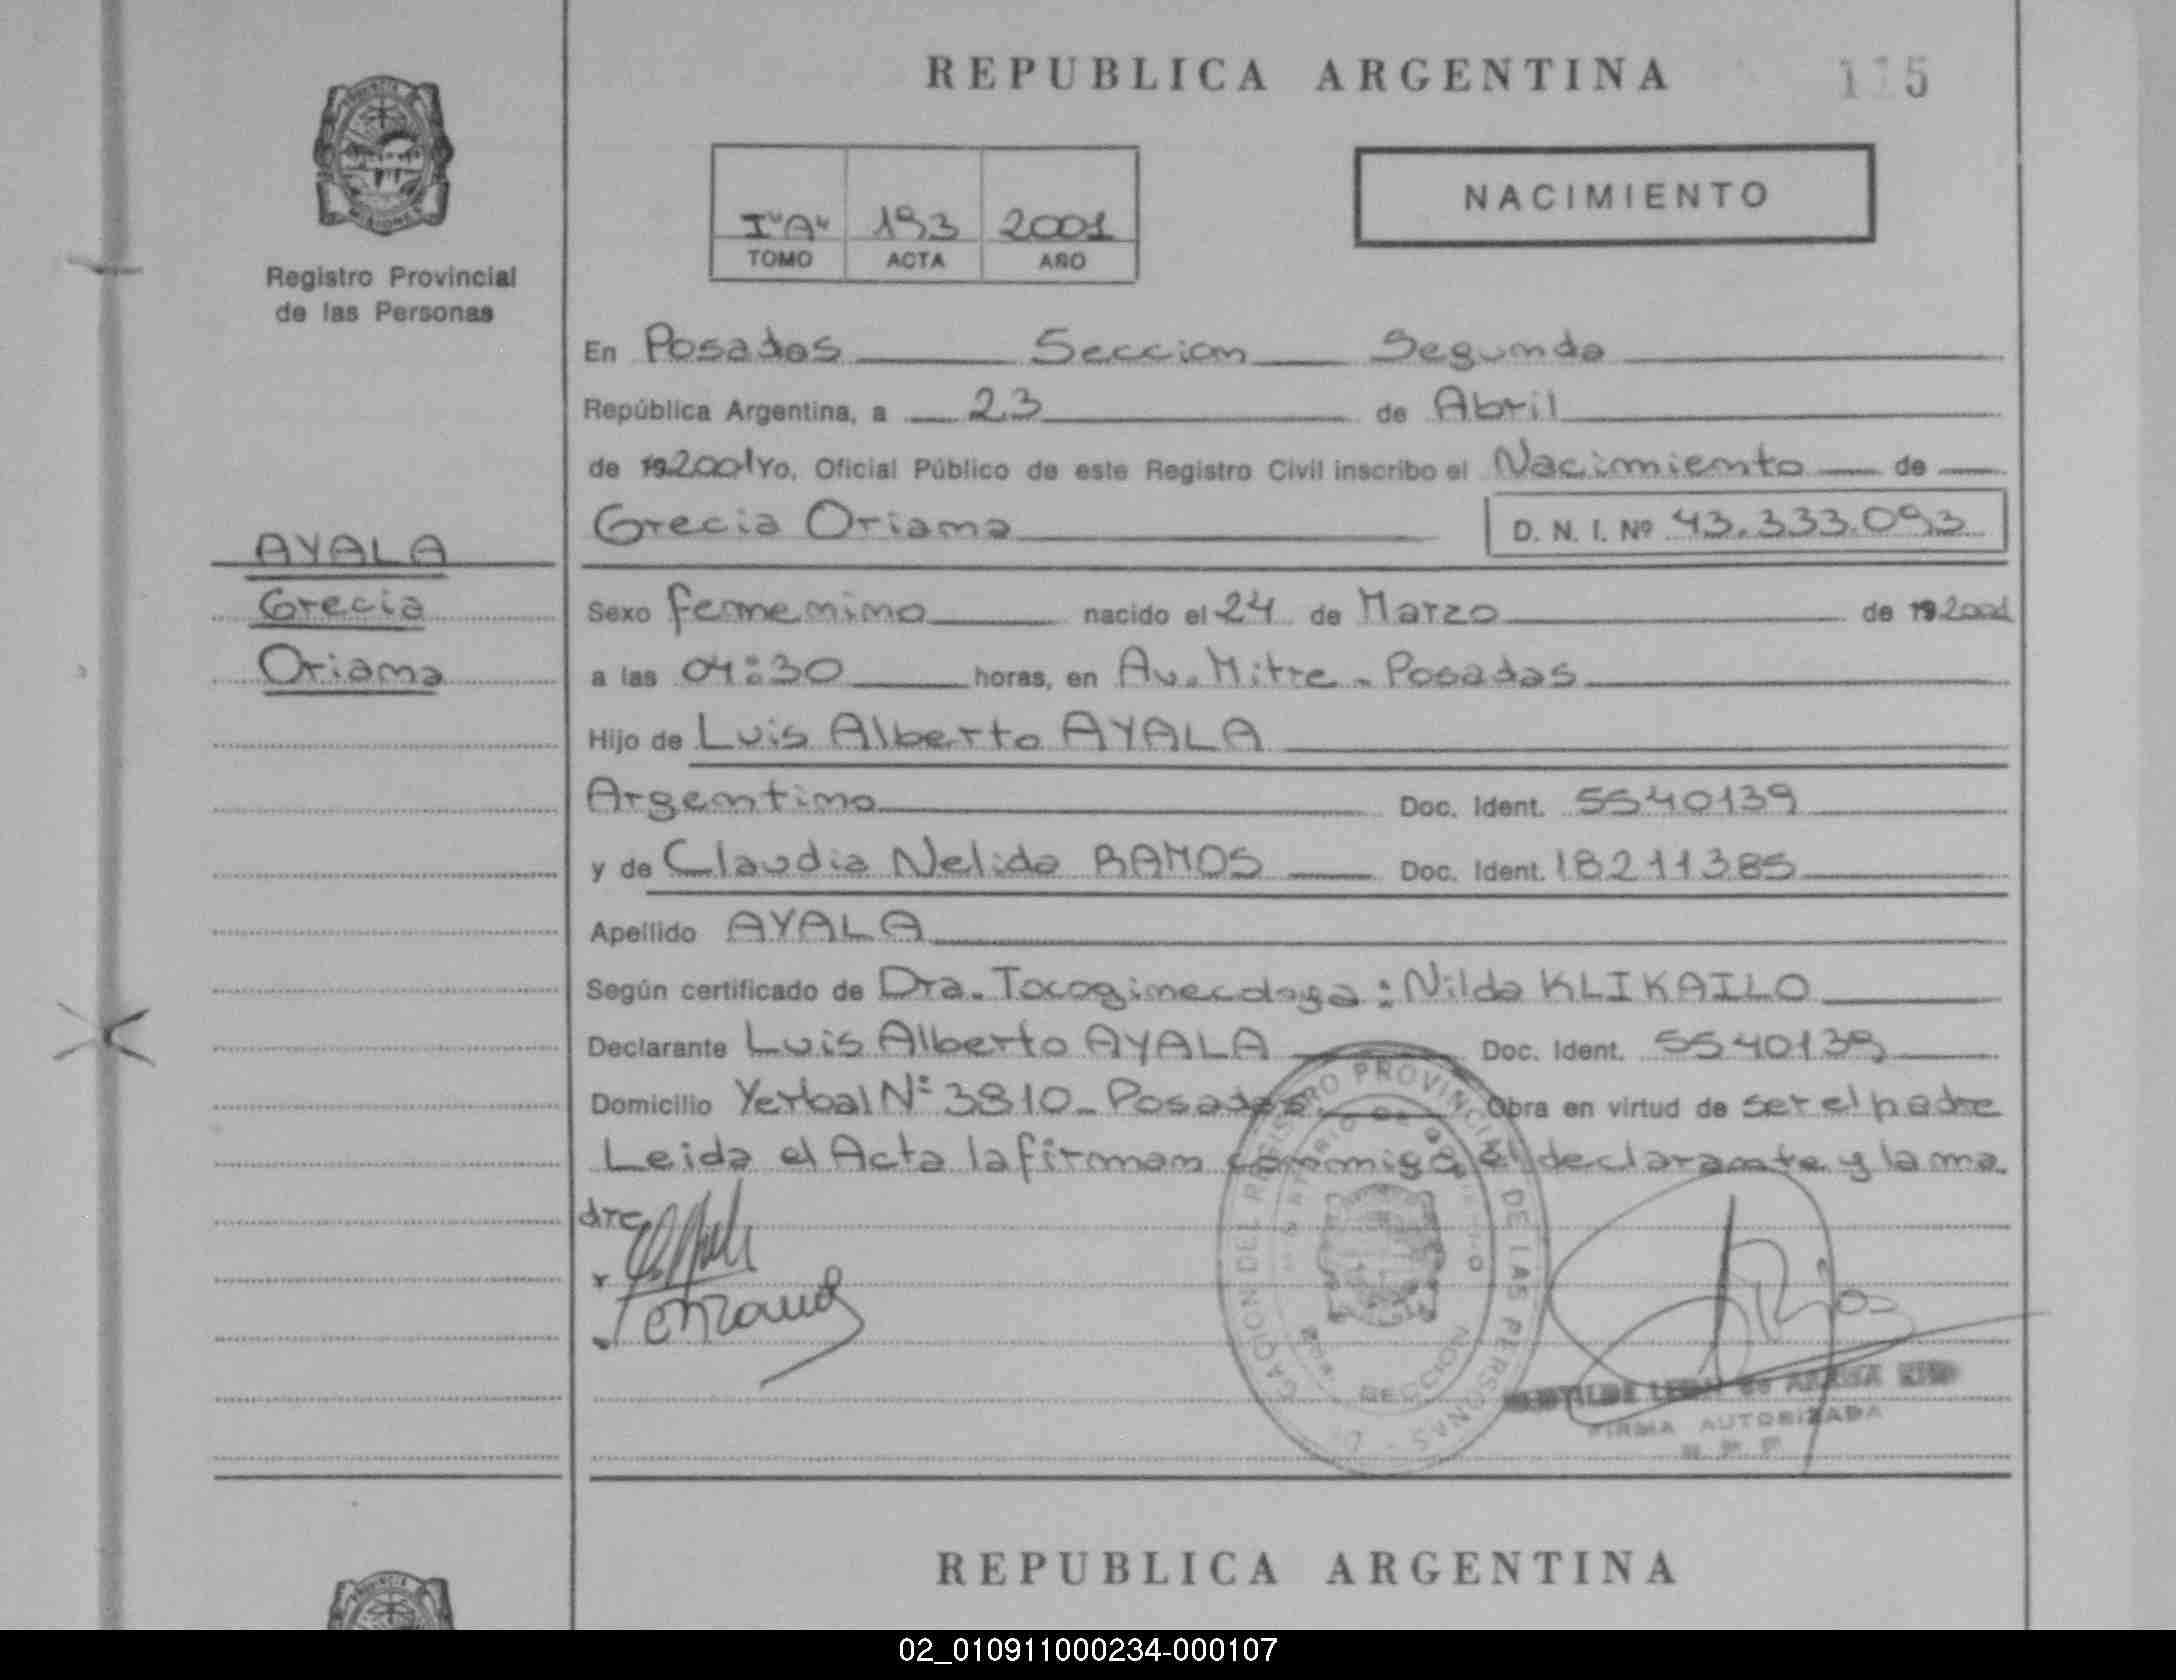 REPUBLICA ARGENTINA
115
Registro Provincial
de las Personas
I "A" 193 2001
TOMO ACTA AÑO
NACIMIENTO
En Posadas Seccion Segunda
República Argentina, a 23 de Abril
de 19 2001 Yo, Oficial Público de este Registro Civil inscribo el Nacimiento de
Grecia Oriana
D. N. I. Nº 43.333.093
AYALA
Grecia
Oriana
Sexo femenino nacido el 24 de Marzo de 19 2001
a las 04:30 horas, en Av. Mitre - Posadas
Hijo de Luis Alberto AYALA
Argentino Doc. Ident. 5540139
y de Claudia Nelida RAMOS Doc. Ident. 18211385
Apellido AYALA
Según certificado de Dra. Tocoginecologa: Nilda KLIKAILO
Declarante Luis Alberto AYALA Doc. Ident. 5540139
Domicilio Yerbal Nº 3810 - Posadas Obra en virtud de ser el padre
Leida el Acta la firman conmigo, el declarante y la ma
dre
DEL REGISTRO PROVINCIAL DE LAS PERSONAS
SECCION
FIRMA AUTORIZADA
REPUBLICA ARGENTINA
02_010911000234-000107